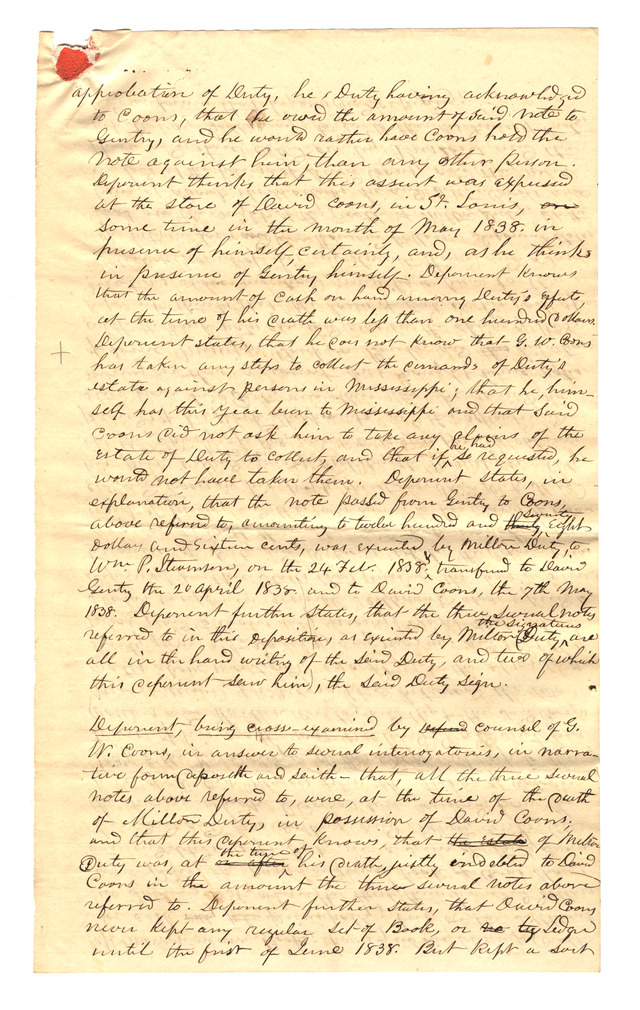 approbation of Duty, he, Duty having acknowledged
to Coons, that he owed the amount of said note to
Gentry, and he would rather have Coons hold the
note against him, than any other person.
Deponent thinks that this assent was expressed
at the store of David Coons, in St. Louis, on
some time in the month of May 1838. in
presence of himself, certainly, and, as he thinks
in presence of Gentry himself. Deponent knows
that the amount of cash on hand among Duty's effects,
at the time of his death was less than one hundred dollars.
Deponent states, that he does not know that G. W. Coons
has taken any steps to collect the demands of Duty's
estate against persons in Mississippi; that he, him-
self has this year been to Mississippi and that said
Coons did not ask him to take any claims of the
Estate of Duty to collect, and that if he had so requested, he
would not have taken them. Deponent states, in
explanation, that the note passed from Gentry to Coons,
above referred to, amounting to twelve hundred and thirty seventy eight
dollars and sixteen cents, was executed by Milton Duty, to
Wm P. Stevenson, on the 24 Feb. 1838. transferred to David
Gentry the 20 April 1838 and to David Coons, the 7th May
1838. Deponent further states, that the three several notes
referred to in this deposition, as executed by Milton Duty, the signatures are
all in the hand writing of the said Duty, and two of which
this deponent saw him, the said Duty sign.
Deponent, being cross-examined by counsel of G.
W. Coons, in answer to several interogatories, in narra-
tive form deposeth and saith - that, all the three several
notes above referred to, were, at the time of the death
of Milton Duty, in possession of David Coons;
and that this deponent knows, that the estate of Milton
Duty was, at or after the time of his death, justly indebted to David
Coons in the amount the three several notes above
referred to. Deponent further states, that David Coons
never kept any regular set of Book, or Ledger
until the first of June 1838. But kept a sort